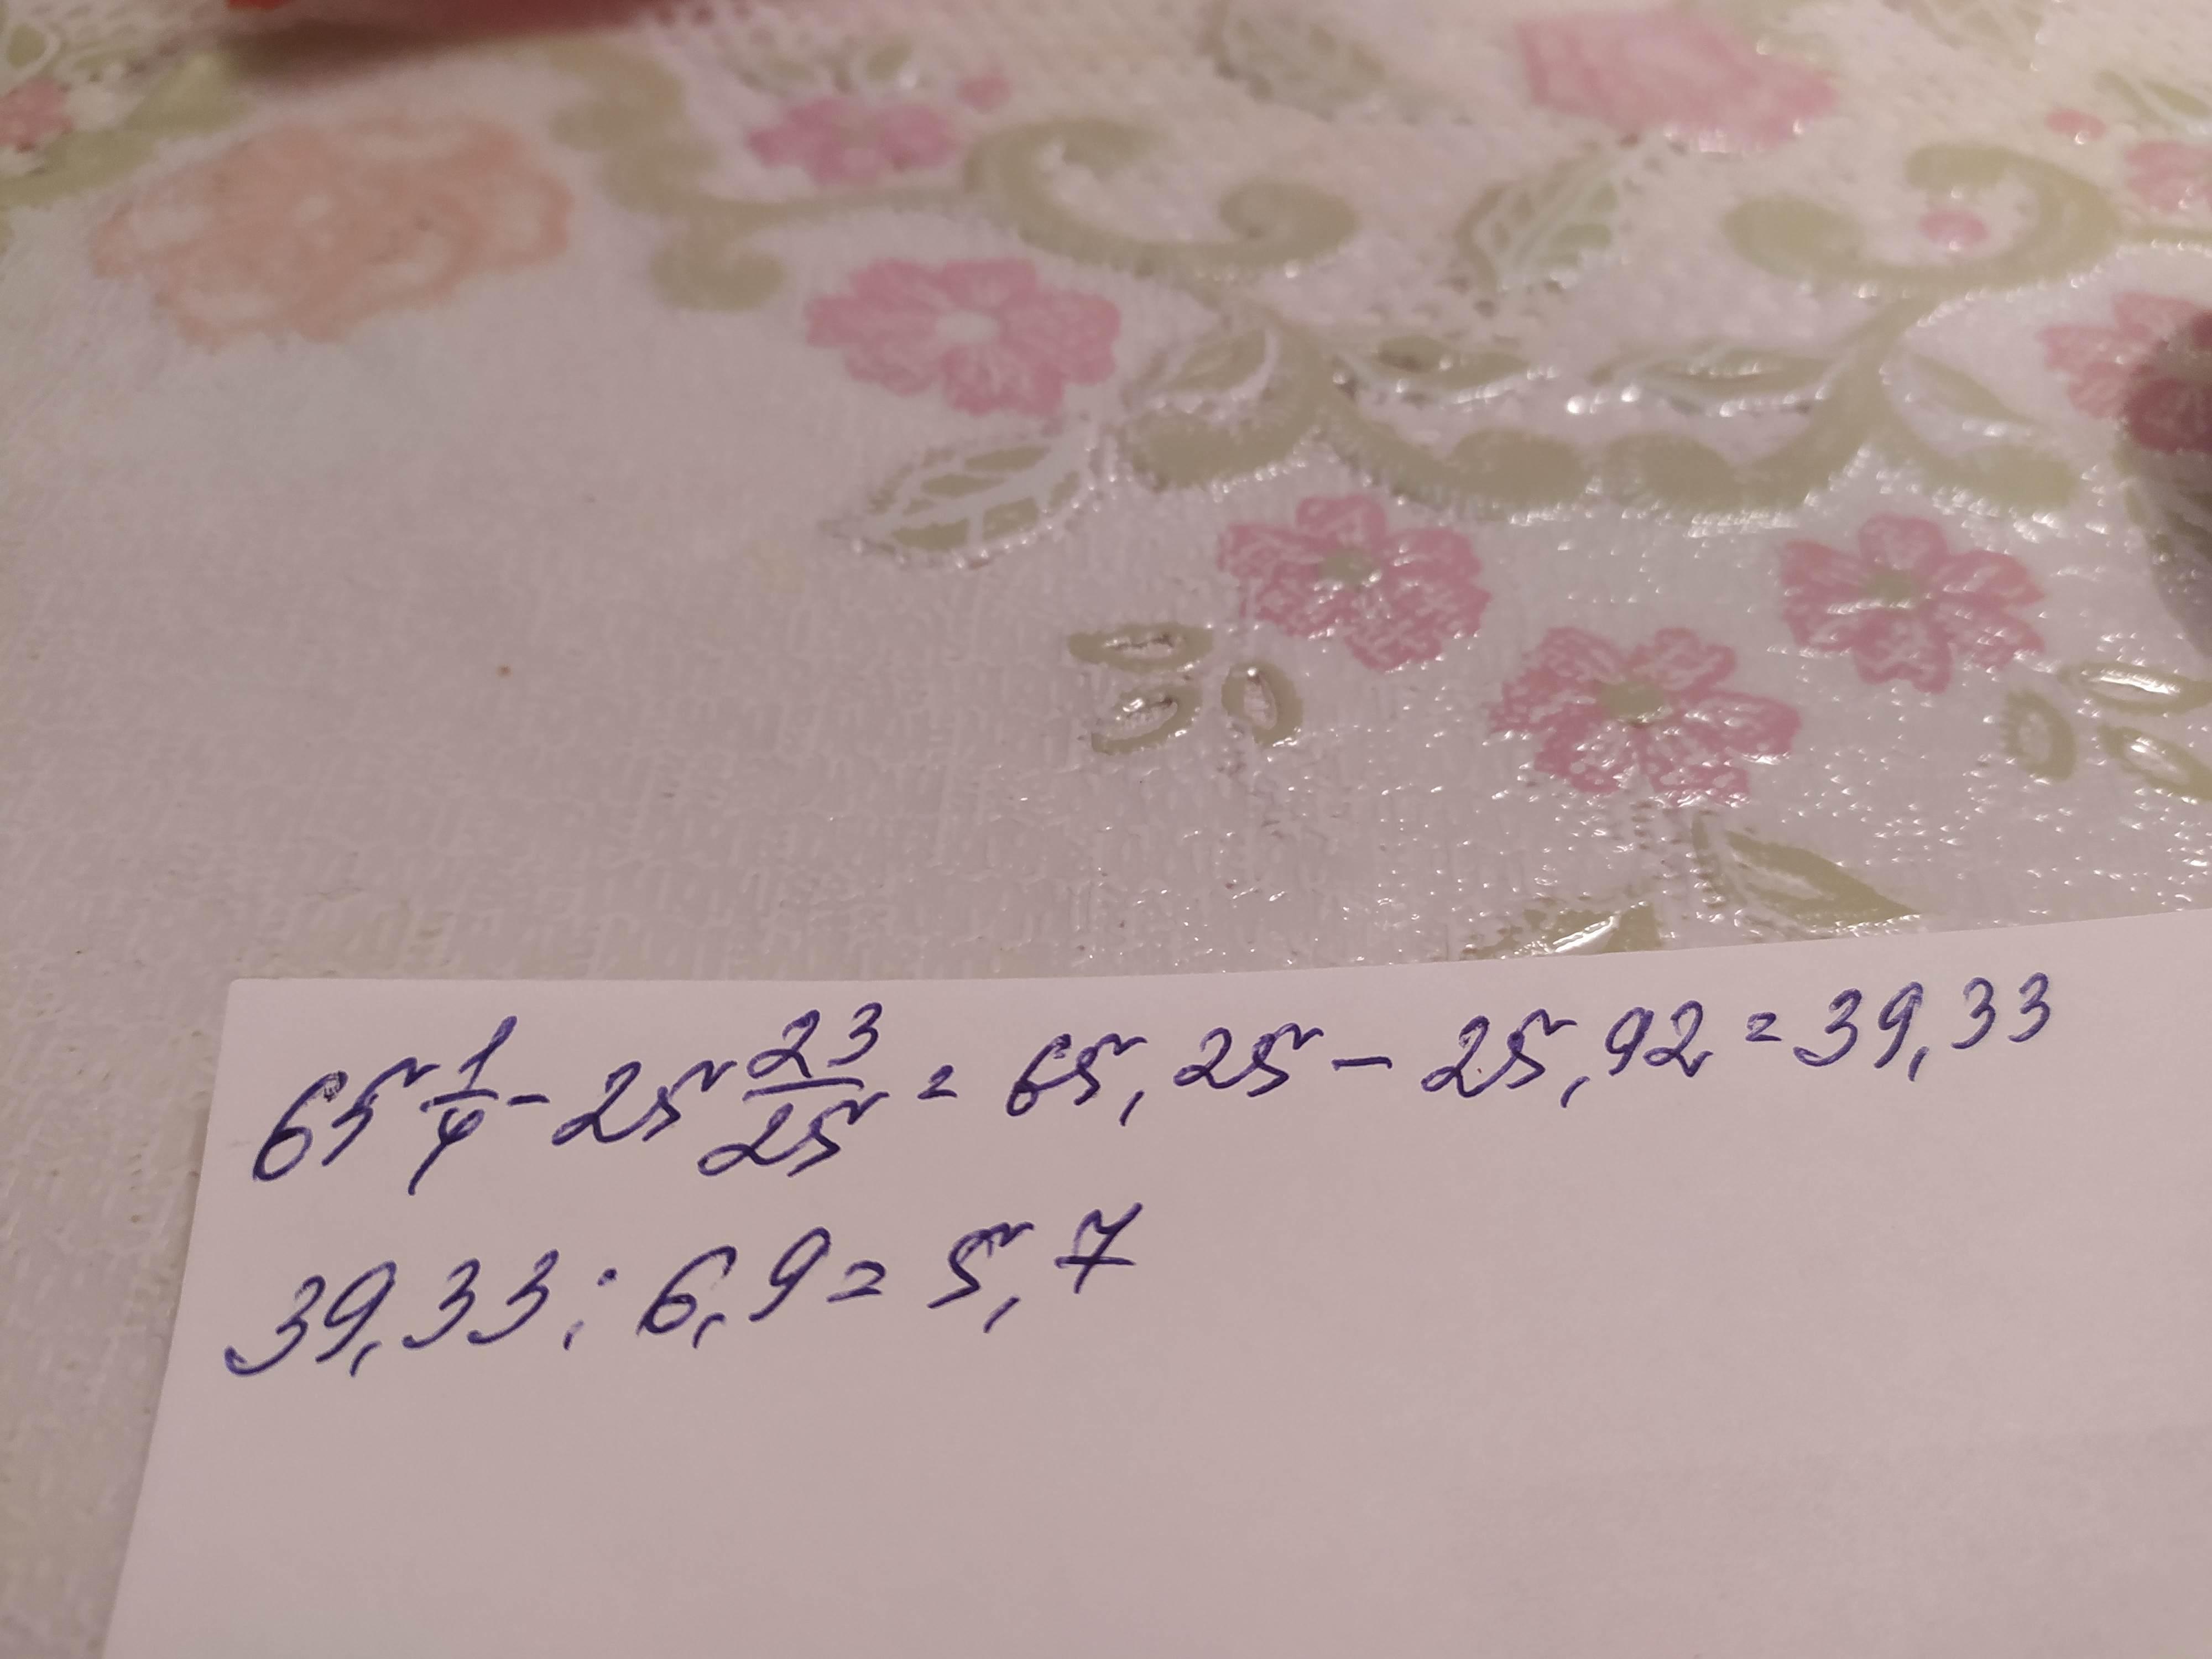 65 1/4 - 25 23/25 = 65,25 - 25,92 = 39,33
39,33 : 6,9 = 5,7